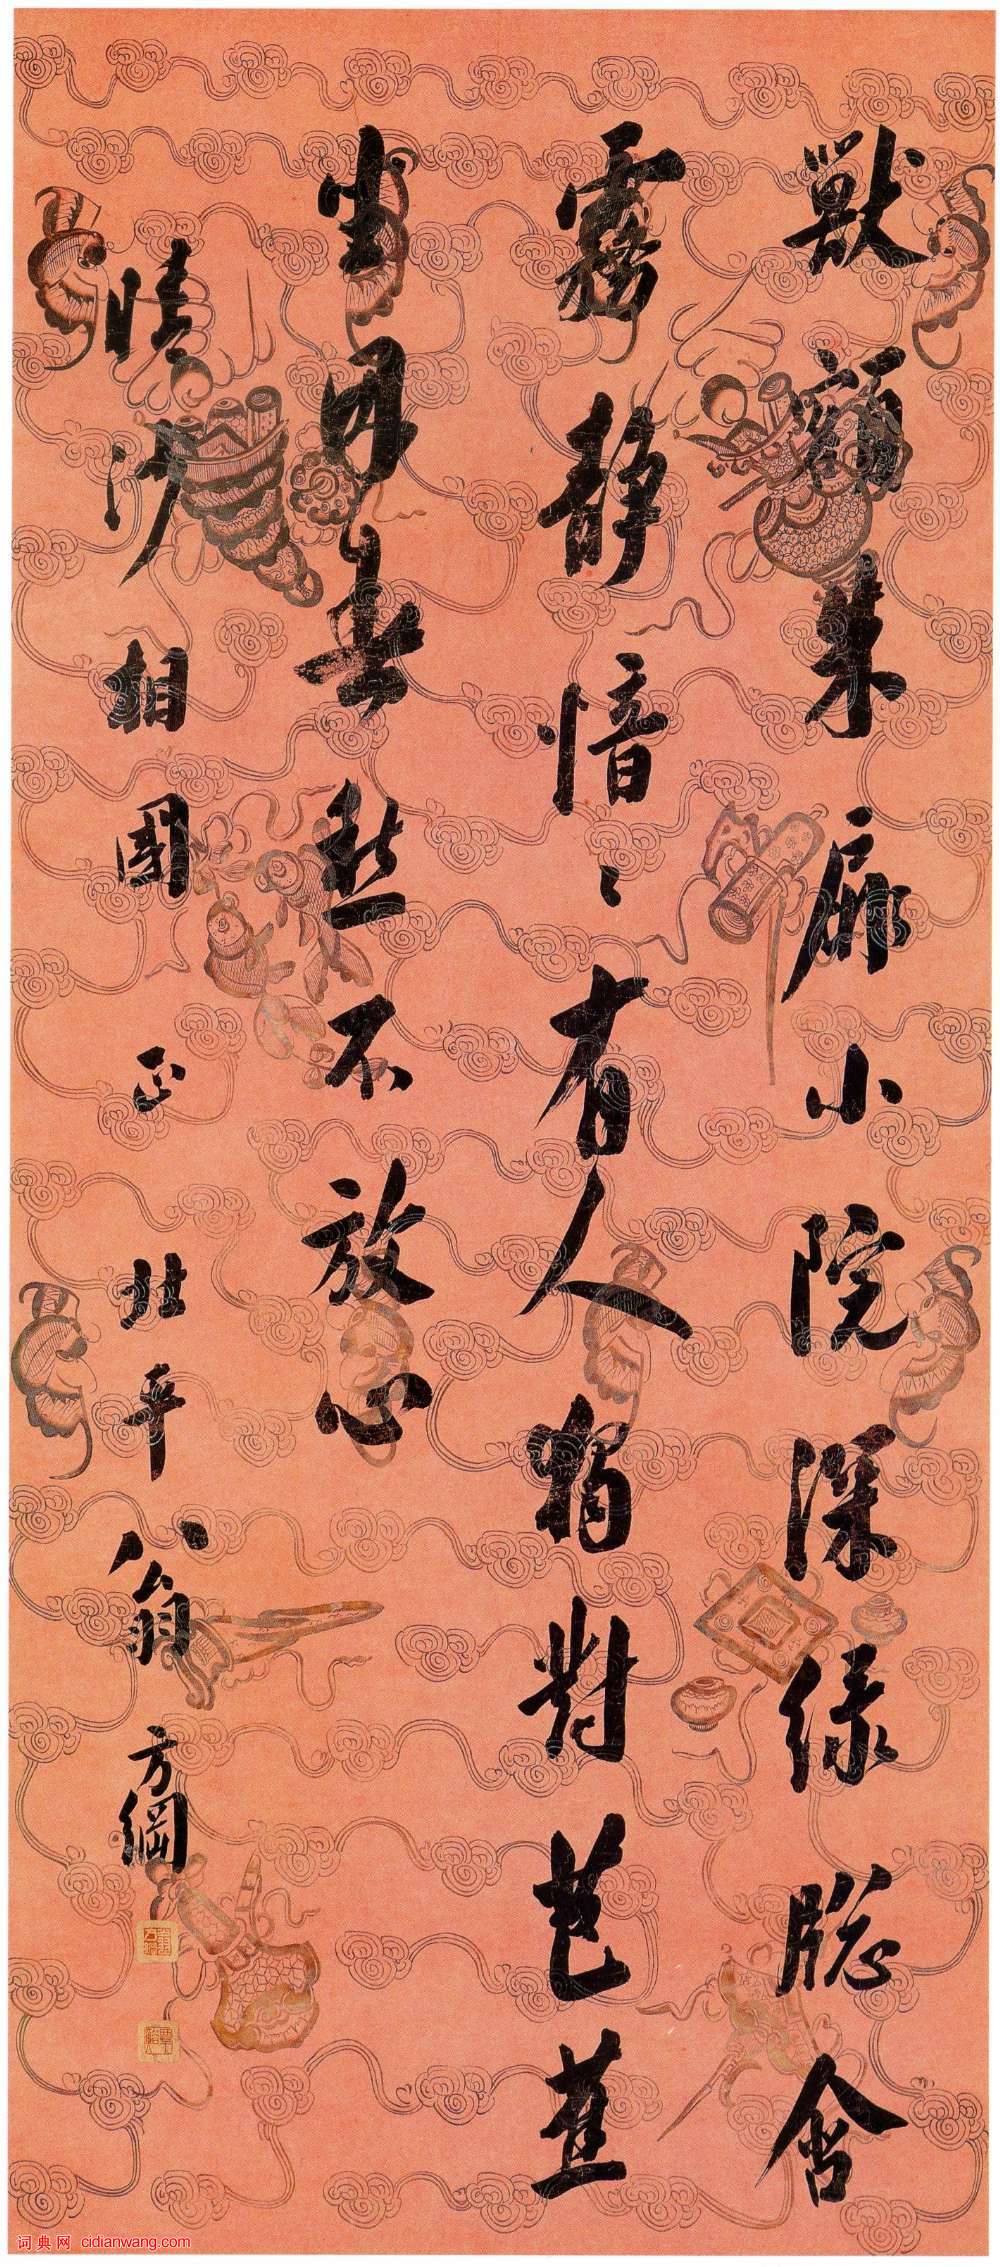 獸額朱扉小院深綠牕含
霧靜愔〻有人獨對芭蕉
坐春愁不放心
晴沙相國正 北平翁方綱
词典网 cidianwang.com